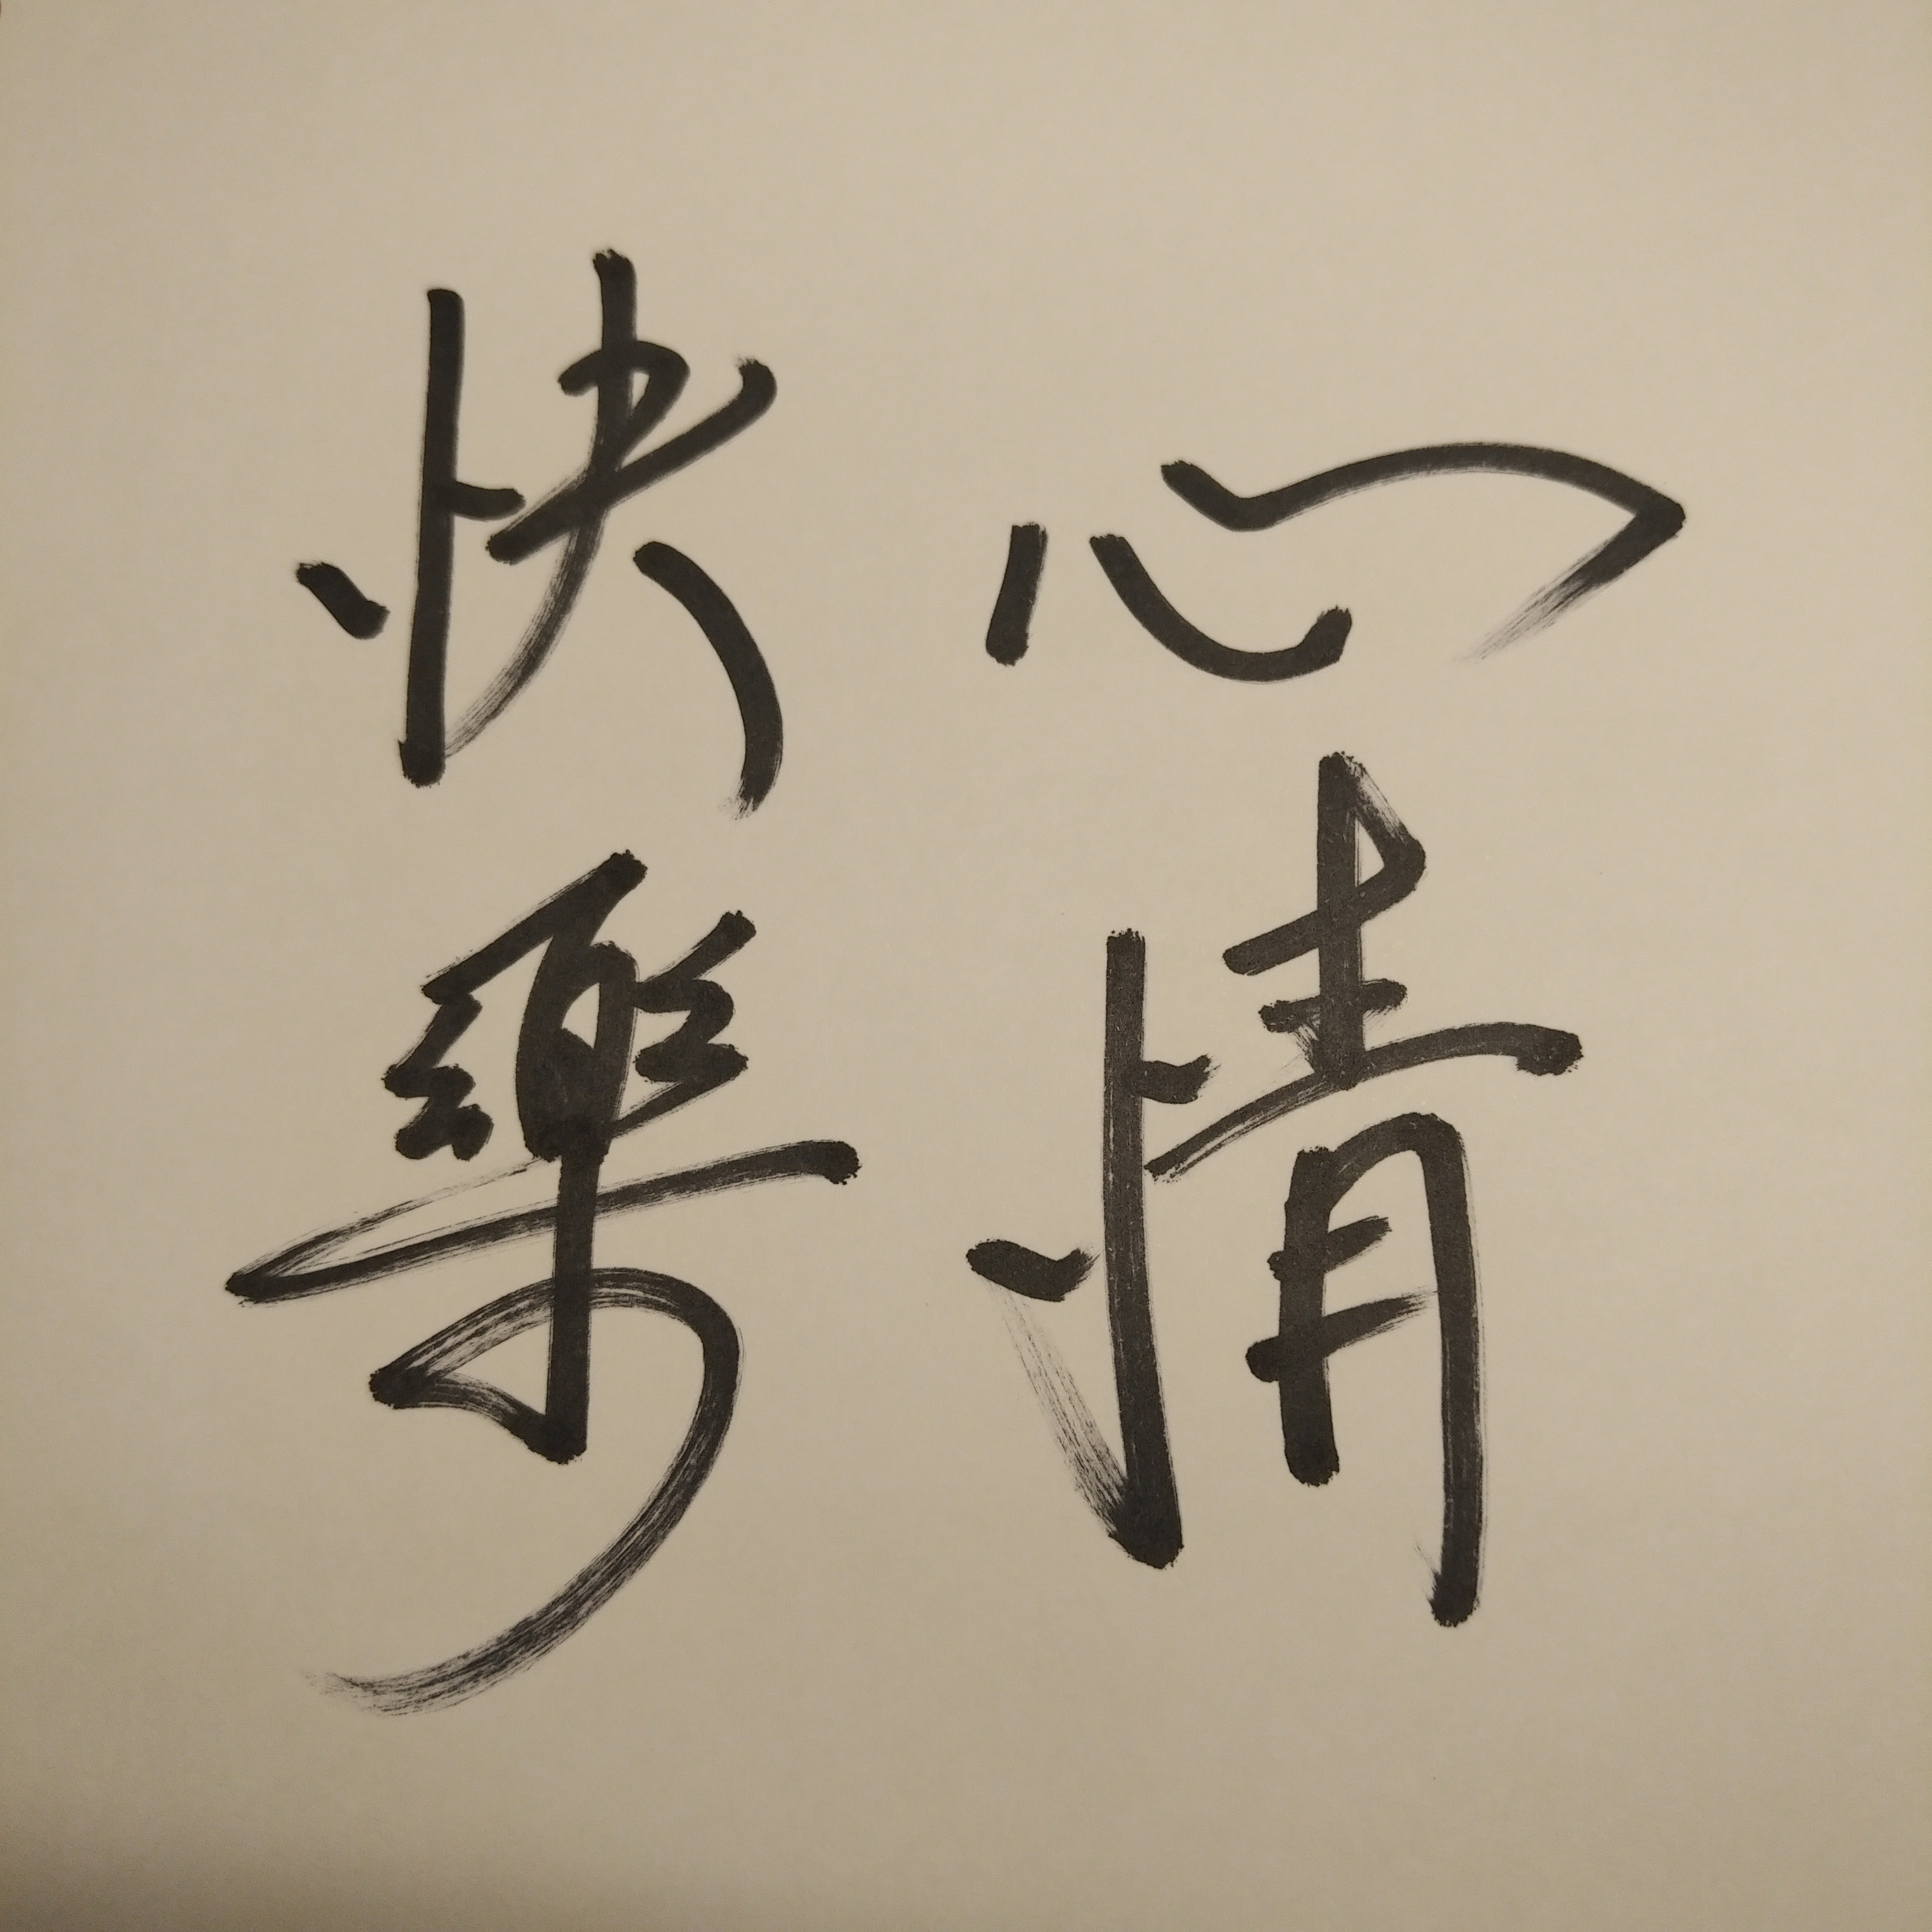 心情
快樂